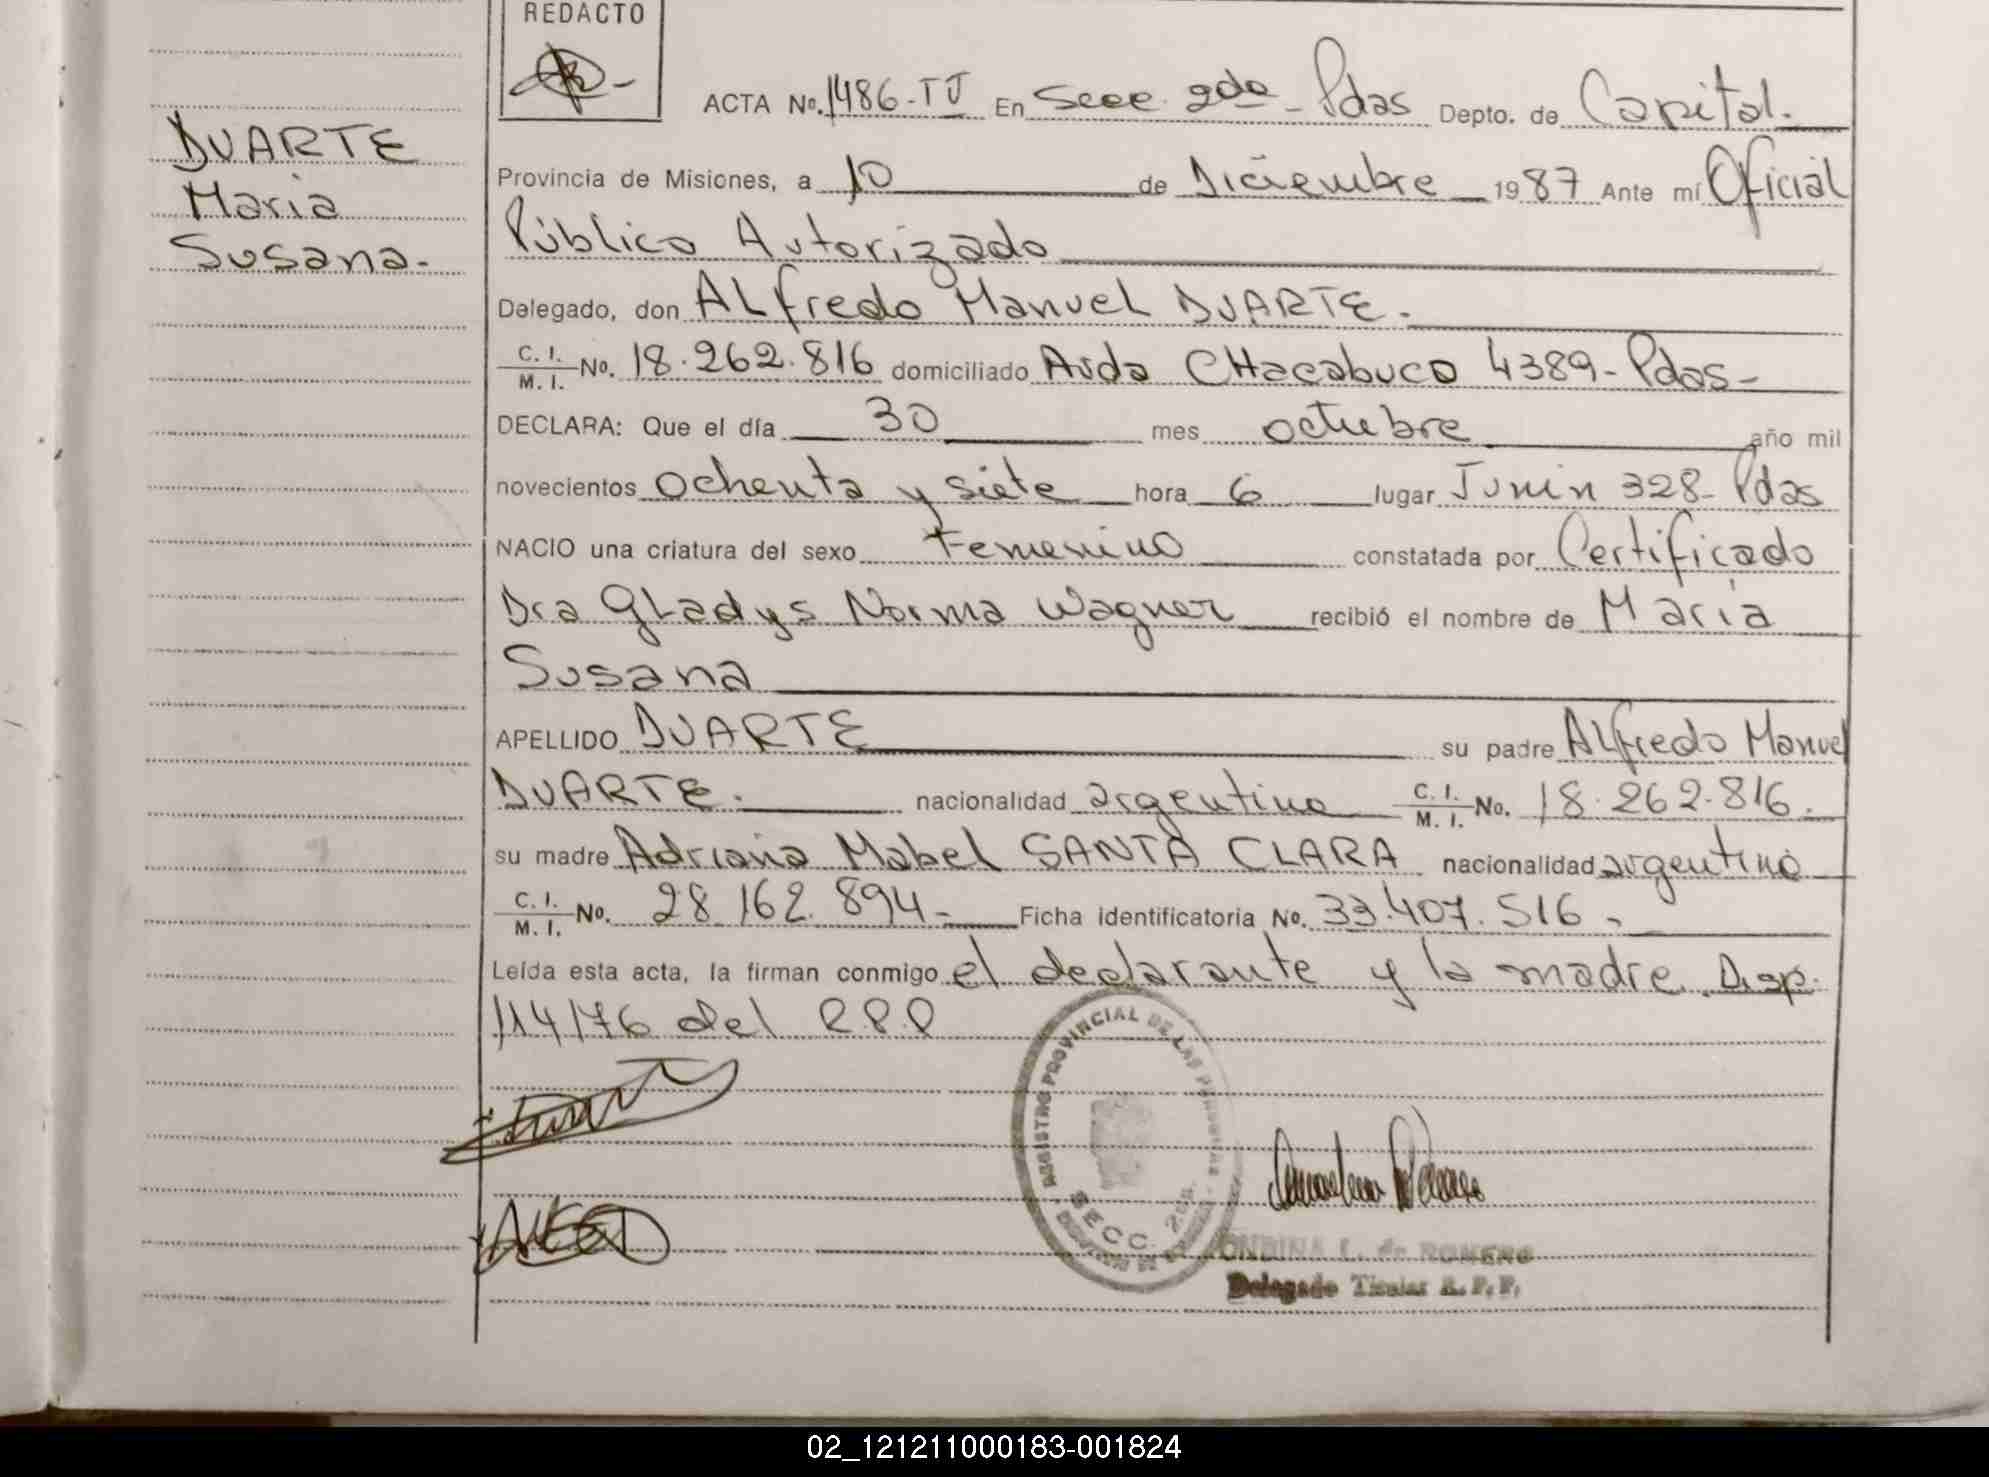 REDACTO
DUARTE
Maria
Susana.
ACTA No. 1486-TJ En Secc. 2da - Pdas Depto. de Capital.
Provincia de Misiones, a 10 de Diciembre 1987 Ante mí Oficial
Público Autorizado
Delegado, don ALfredo Manuel DUARTE.
C. I. / M. I. No. 18.262.816 domiciliado Avda CHacabuco 4389 - Pdas -
DECLARA: Que el día 30 mes octubre año mil
novecientos ochenta y siete hora 6 lugar Junin 328 - Pdas
NACIO una criatura del sexo Femenino constatada por Certificado
Dra GLadys Norma Wagner recibió el nombre de María
Susana
APELLIDO DUARTE su padre ALfredo Manuel
DUARTE. nacionalidad argentina C. I. / M. I. No. 18.262.816.
su madre Adriana Mabel SANTA CLARA nacionalidad argentina
C. I. / M. I. No. 28.162.894 - Ficha identificatoria No. 33.407.516 -
Leída esta acta, la firman conmigo el declarante y la madre. Disp.
114/76 del R.P.P
REGISTRO PROVINCIAL DE LAS PERSONAS
SECC. 2da.
ONDINA L. de ROMERO
Delegado Titular R. P. P.
02_121211000183-001824